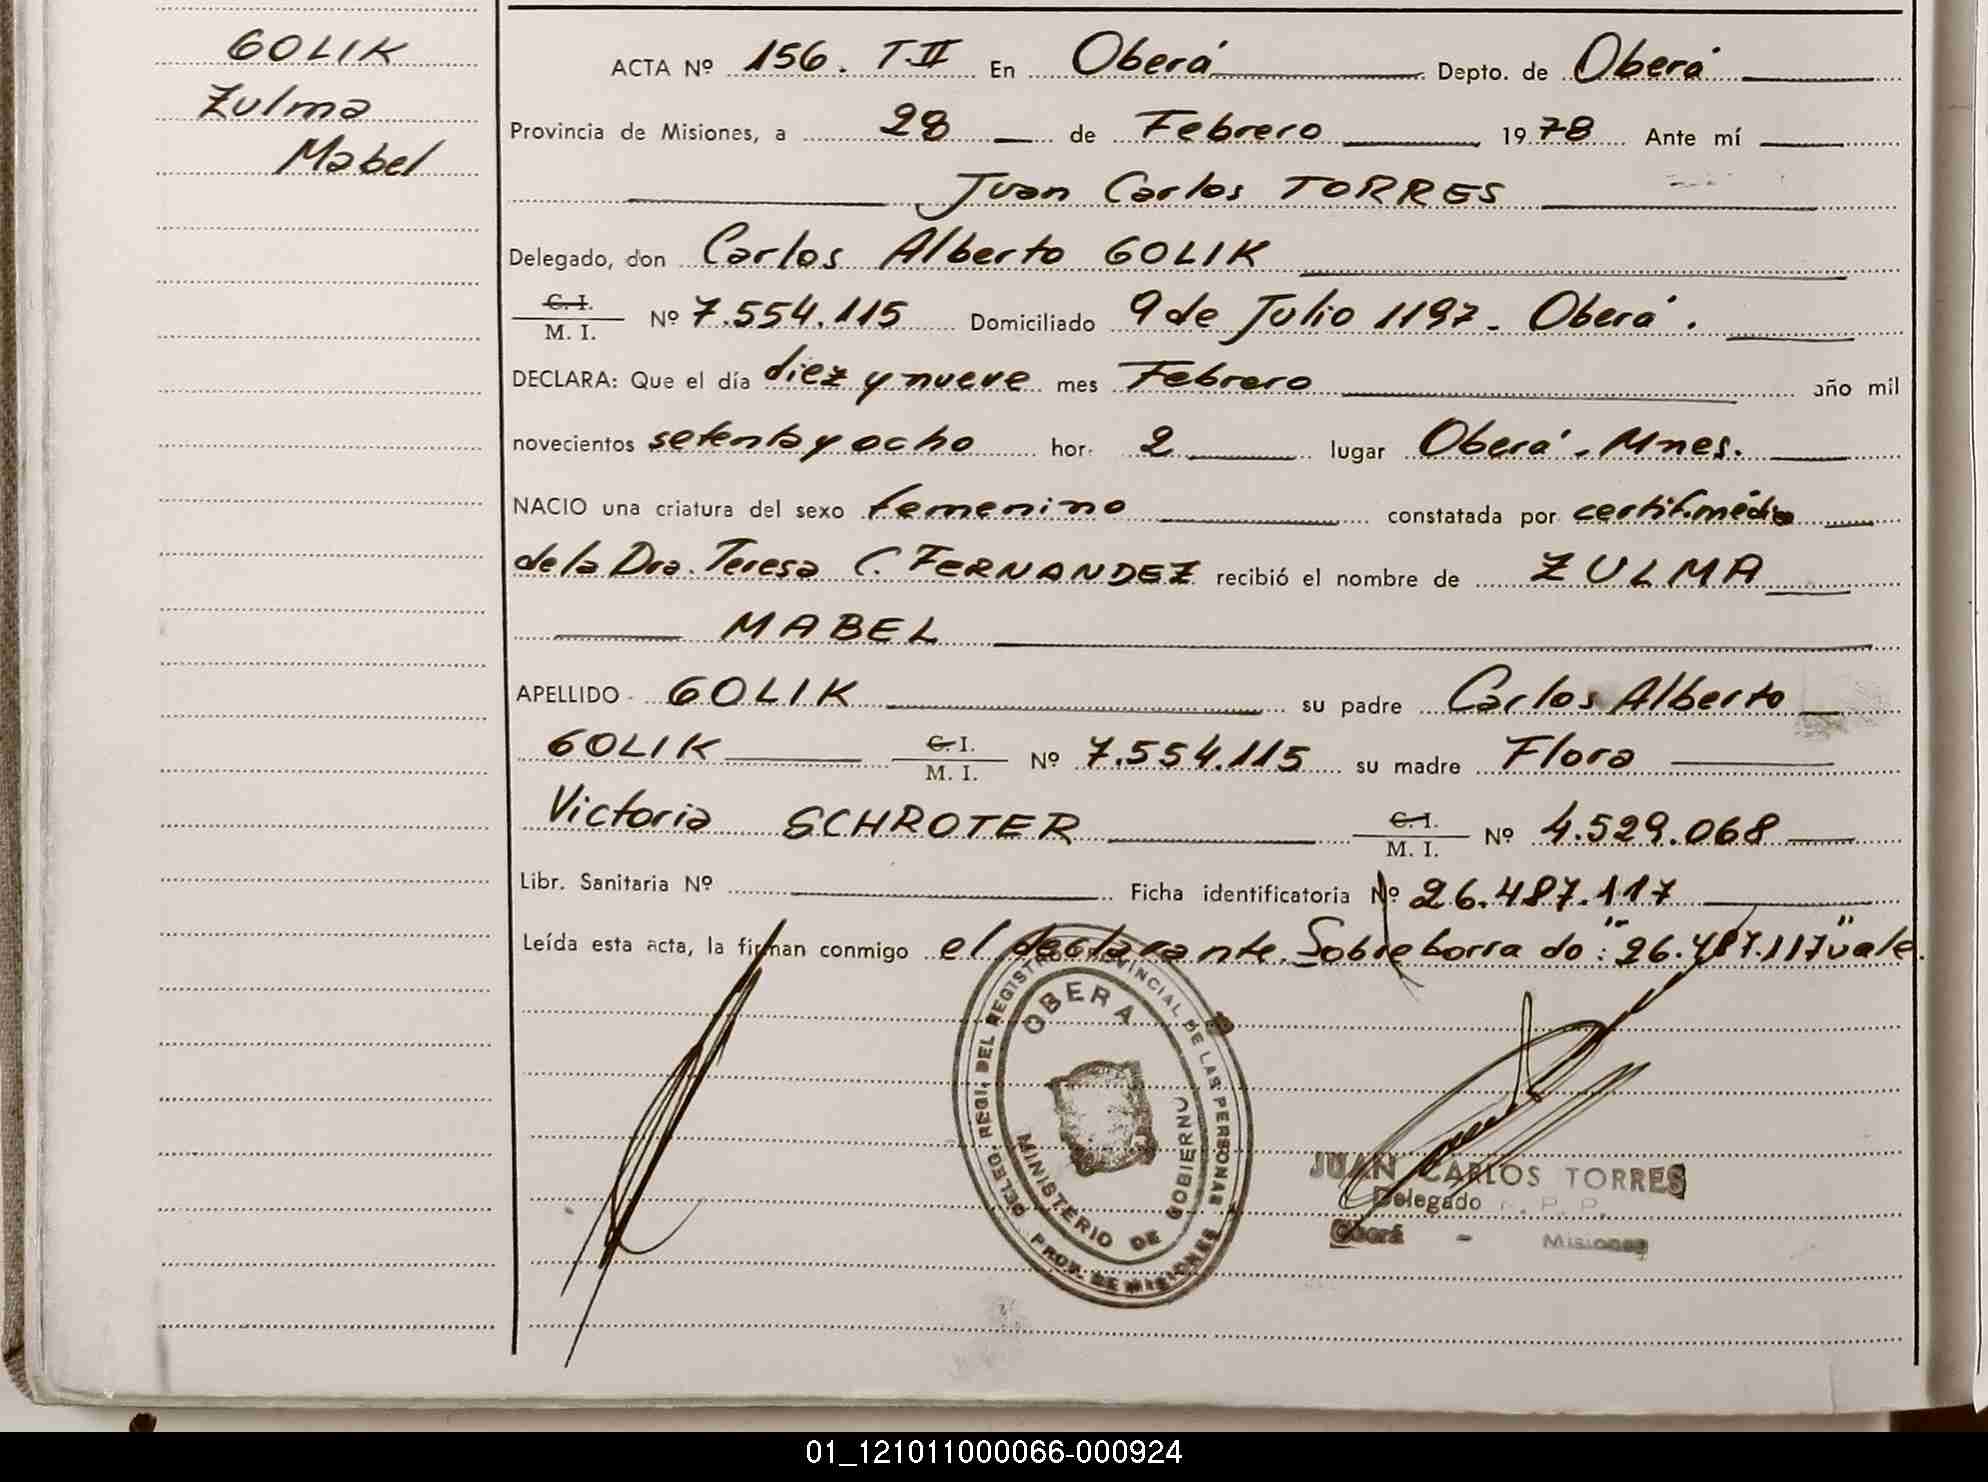 GOLIK
Zulma
Mabel
ACTA Nº 156. T.II En Oberá Depto. de Oberá
Provincia de Misiones, a 28 de Febrero 19 78 Ante mí
Juan Carlos TORRES
Delegado, don Carlos Alberto GOLIK
C. I.
M. I. Nº 7.554.115 Domiciliado 9 de Julio 1197 - Oberá.
DECLARA: Que el día diez y nueve mes Febrero año mil
novecientos setenta y ocho hor. 2 lugar Oberá - Mnes.
NACIO una criatura del sexo femenino constatada por certif. médico
de la Dra. Teresa C. FERNANDEZ recibió el nombre de ZULMA
MABEL
APELLIDO GOLIK su padre Carlos Alberto
GOLIK C. I.
M. I. Nº 7.554.115 su madre Flora
Victoria SCHROTER C. I.
M. I. Nº 4.529.068
Libr. Sanitaria Nº Ficha identificatoria Nº 26.487.117
Leída esta acta, la firman conmigo el declarante. Sobreborrado: "26.487.117" vale.
DELEG. REGI. DEL REGISTRO PROVINCIAL DE LAS PERSONAS
OBERA
MINISTERIO DE GOBIERNO
PROV. DE MISIONES
JUAN CARLOS TORRES
Delegado R. P. P.
Oberá - Misiones
01_121011000066-000924